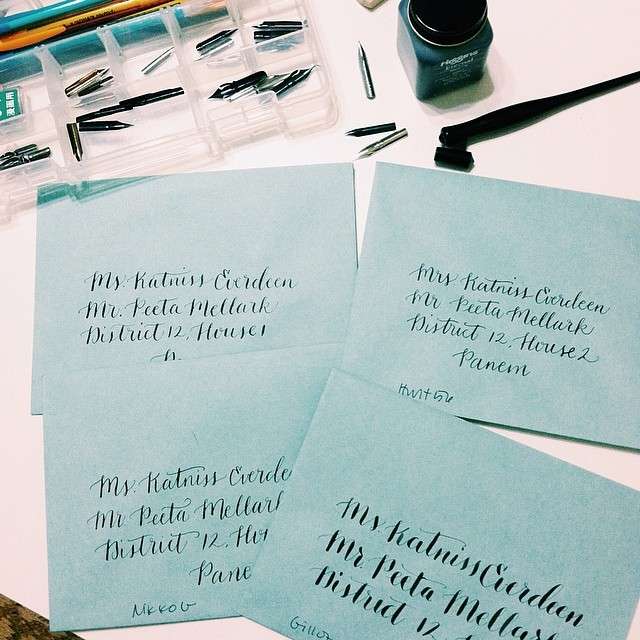 Higgins
Eternal
Ms. Katniss Everdeen
Mr. Peeta Mellark
District 12, House 1
Mrs. Katniss Everdeen
Mr. Peeta Mellark
District 12, House 2
Panem
Hunt 56
Ms. Katniss Everde
Mr. Peeta Mellar
District 12, Hou
Pane
Nikko G
Ms Katniss Everdeen
Mr Peeta Mellark
District 12